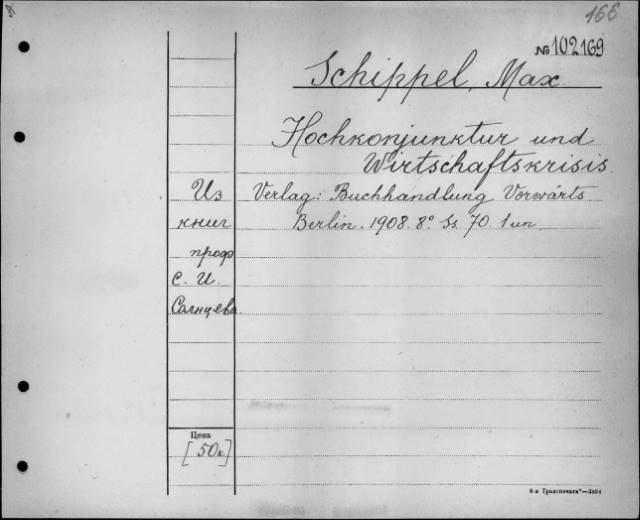 166
№ 102169
Schippel, Max.
Hochkonjunktur und
Wirtschaftskrisis.
Verlag: Buchhandlung Vorwärts
Berlin. 1908. 8° Ss. 70. 1 un
Из
книг
проф
С. И.
Солнцева.
Цена
[50к]